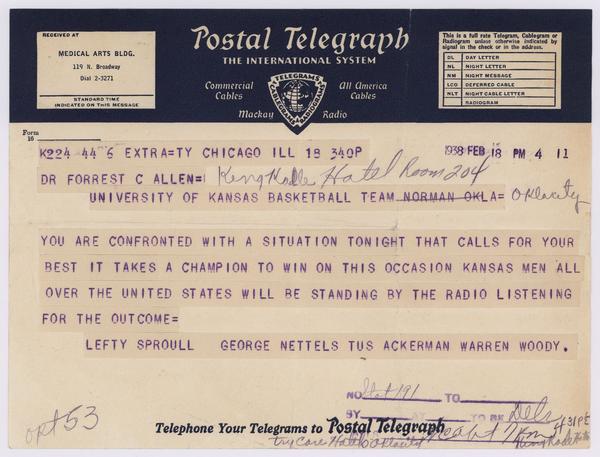 RECEIVED AT
MEDICAL ARTS BLDG.
119 N. Broadway
Dial 2-3271
STANDARD TIME
INDICATED ON THIS MESSAGE
Postal Telegraph
THE INTERNATIONAL SYSTEM
Commercial Cables
All America Cables
Mackay Radio
TELEGRAMS
CABLEGRAMS
RADIOGRAMS
This is a full rate Telegram, Cablegram or
Radiogram unless otherwise indicated by
signal in the check or in the address.
DL DAY LETTER
NL NIGHT LETTER
NM NIGHT MESSAGE
LCO DEFERRED CABLE
NLT NIGHT CABLE LETTER
RADIOGRAM
Form
16
K224 44 6 EXTRA=TY CHICAGO ILL 18 340P
1938 FEB 18 PM 4 11
DR FORREST C ALLEN= Hotel Room 204
UNIVERSITY OF KANSAS BASKETBALL TEAM NORMAN OKLA= Okla City
YOU ARE CONFRONTED WITH A SITUATION TONIGHT THAT CALLS FOR YOUR
BEST IT TAKES A CHAMPION TO WIN ON THIS OCCASION KANSAS MEN ALL
OVER THE UNITED STATES WILL BE STANDING BY THE RADIO LISTENING
FOR THE OUTCOME=
LEFTY SPROULL GEORGE NETTELS TUS ACKERMAN WARREN WOODY.
NO. 191 TO
BY AT TO BE Deld
opt 53
Telephone Your Telegrams to Postal Telegraph
try Care